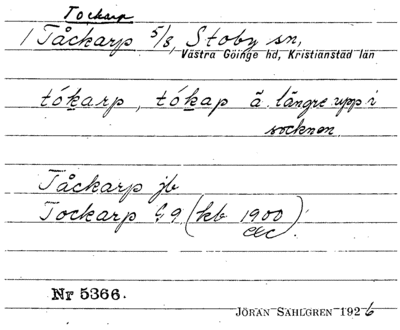 Tockarp
1 Tåckarp 5/8, Stoby sn,
Västra Göinge hd, Kristianstad län
tókarp, tókap ä längre upp i
socknen.
Tåckarp jb
Tockarp G9 (kb 1900
etc.)
Nr 5366.
JÖRAN SAHLGREN 1926